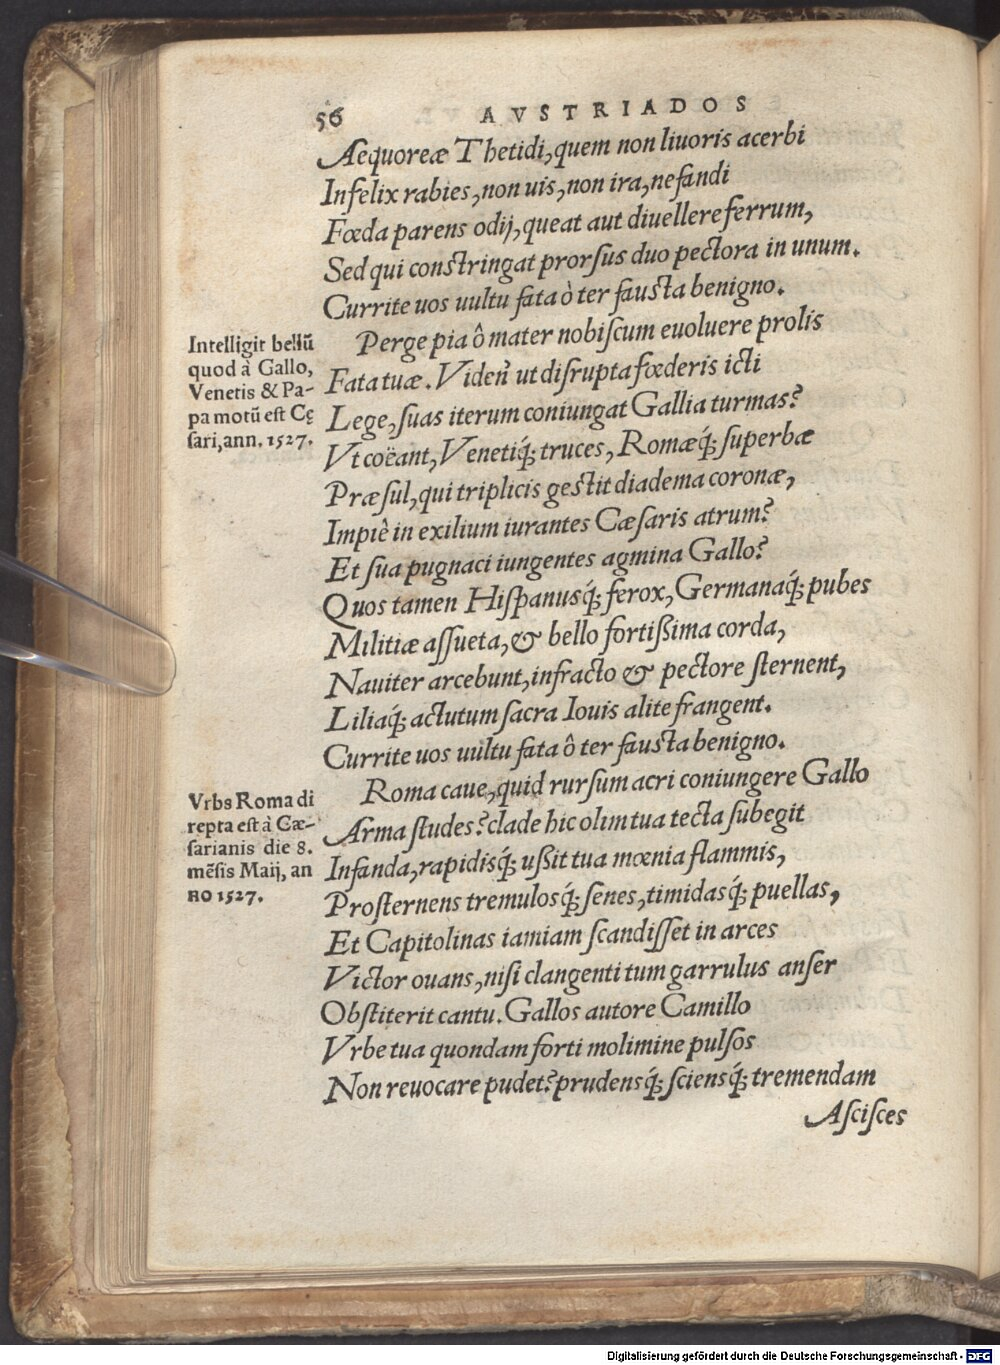 56 AVSTRIADOS
Aequoreæ Thetidi, quem non liuoris acerbi
Infelix rabies, non uis, non ira, nefandi
Fœda parens odij, queat aut diuellere ferrum,
Sed qui conſtringat prorſus duo pectora in unum.
Currite uos uultu fata ò ter fauſta benigno.
Intelligit bellũ
quod à Gallo,
Venetis & Pa-
pa motũ eſt Cę
ſari, ann. 1527.
Perge pia ô mater nobiſcum euoluere prolis
Fata tuæ. Viden̄ ut diſrupta fœderis icti
Lege, ſuas iterum coniungat Gallia turmas?
Vt coëant, Venetiq́; truces, Romæq́; ſuperbæ
Præſul, qui triplicis geſtit diadema coronæ,
Impiè in exilium iurantes Cæſaris atrum?
Et ſua pugnaci iungentes agmina Gallo?
Quos tamen Hiſpanusq́; ferox, Germanaq́; pubes
Militiæ aſſueta, & bello fortißima corda,
Nauiter arcebunt, infracto & pectore ſternent,
Liliaq́; actutum ſacra Iouis alite frangent.
Currite uos uultu fata ô ter fauſta benigno.
Vrbs Roma di
repta eſt à Cæ-
ſarianis die 8.
mẽſis Maij, an
no 1527.
Roma caue, quid rurſum acri coniungere Gallo
Arma ſtudes? clade hic olim tua tecta ſubegit
Infanda, rapidisq́; ußit tua mœnia flammis,
Proſternens tremulosq́; ſenes, timidasq́; puellas,
Et Capitolinas iamiam ſcandiſſet in arces
Victor ouans, niſi clangenti tum garrulus anſer
Obſtiterit cantu. Gallos autore Camillo
Vrbe tua quondam forti molimine pulſos
Non reuocare pudet? prudensq́; ſciensq́; tremendam
Aſciſces
Digitalisierung gefördert durch die Deutsche Forschungsgemeinschaft - DFG